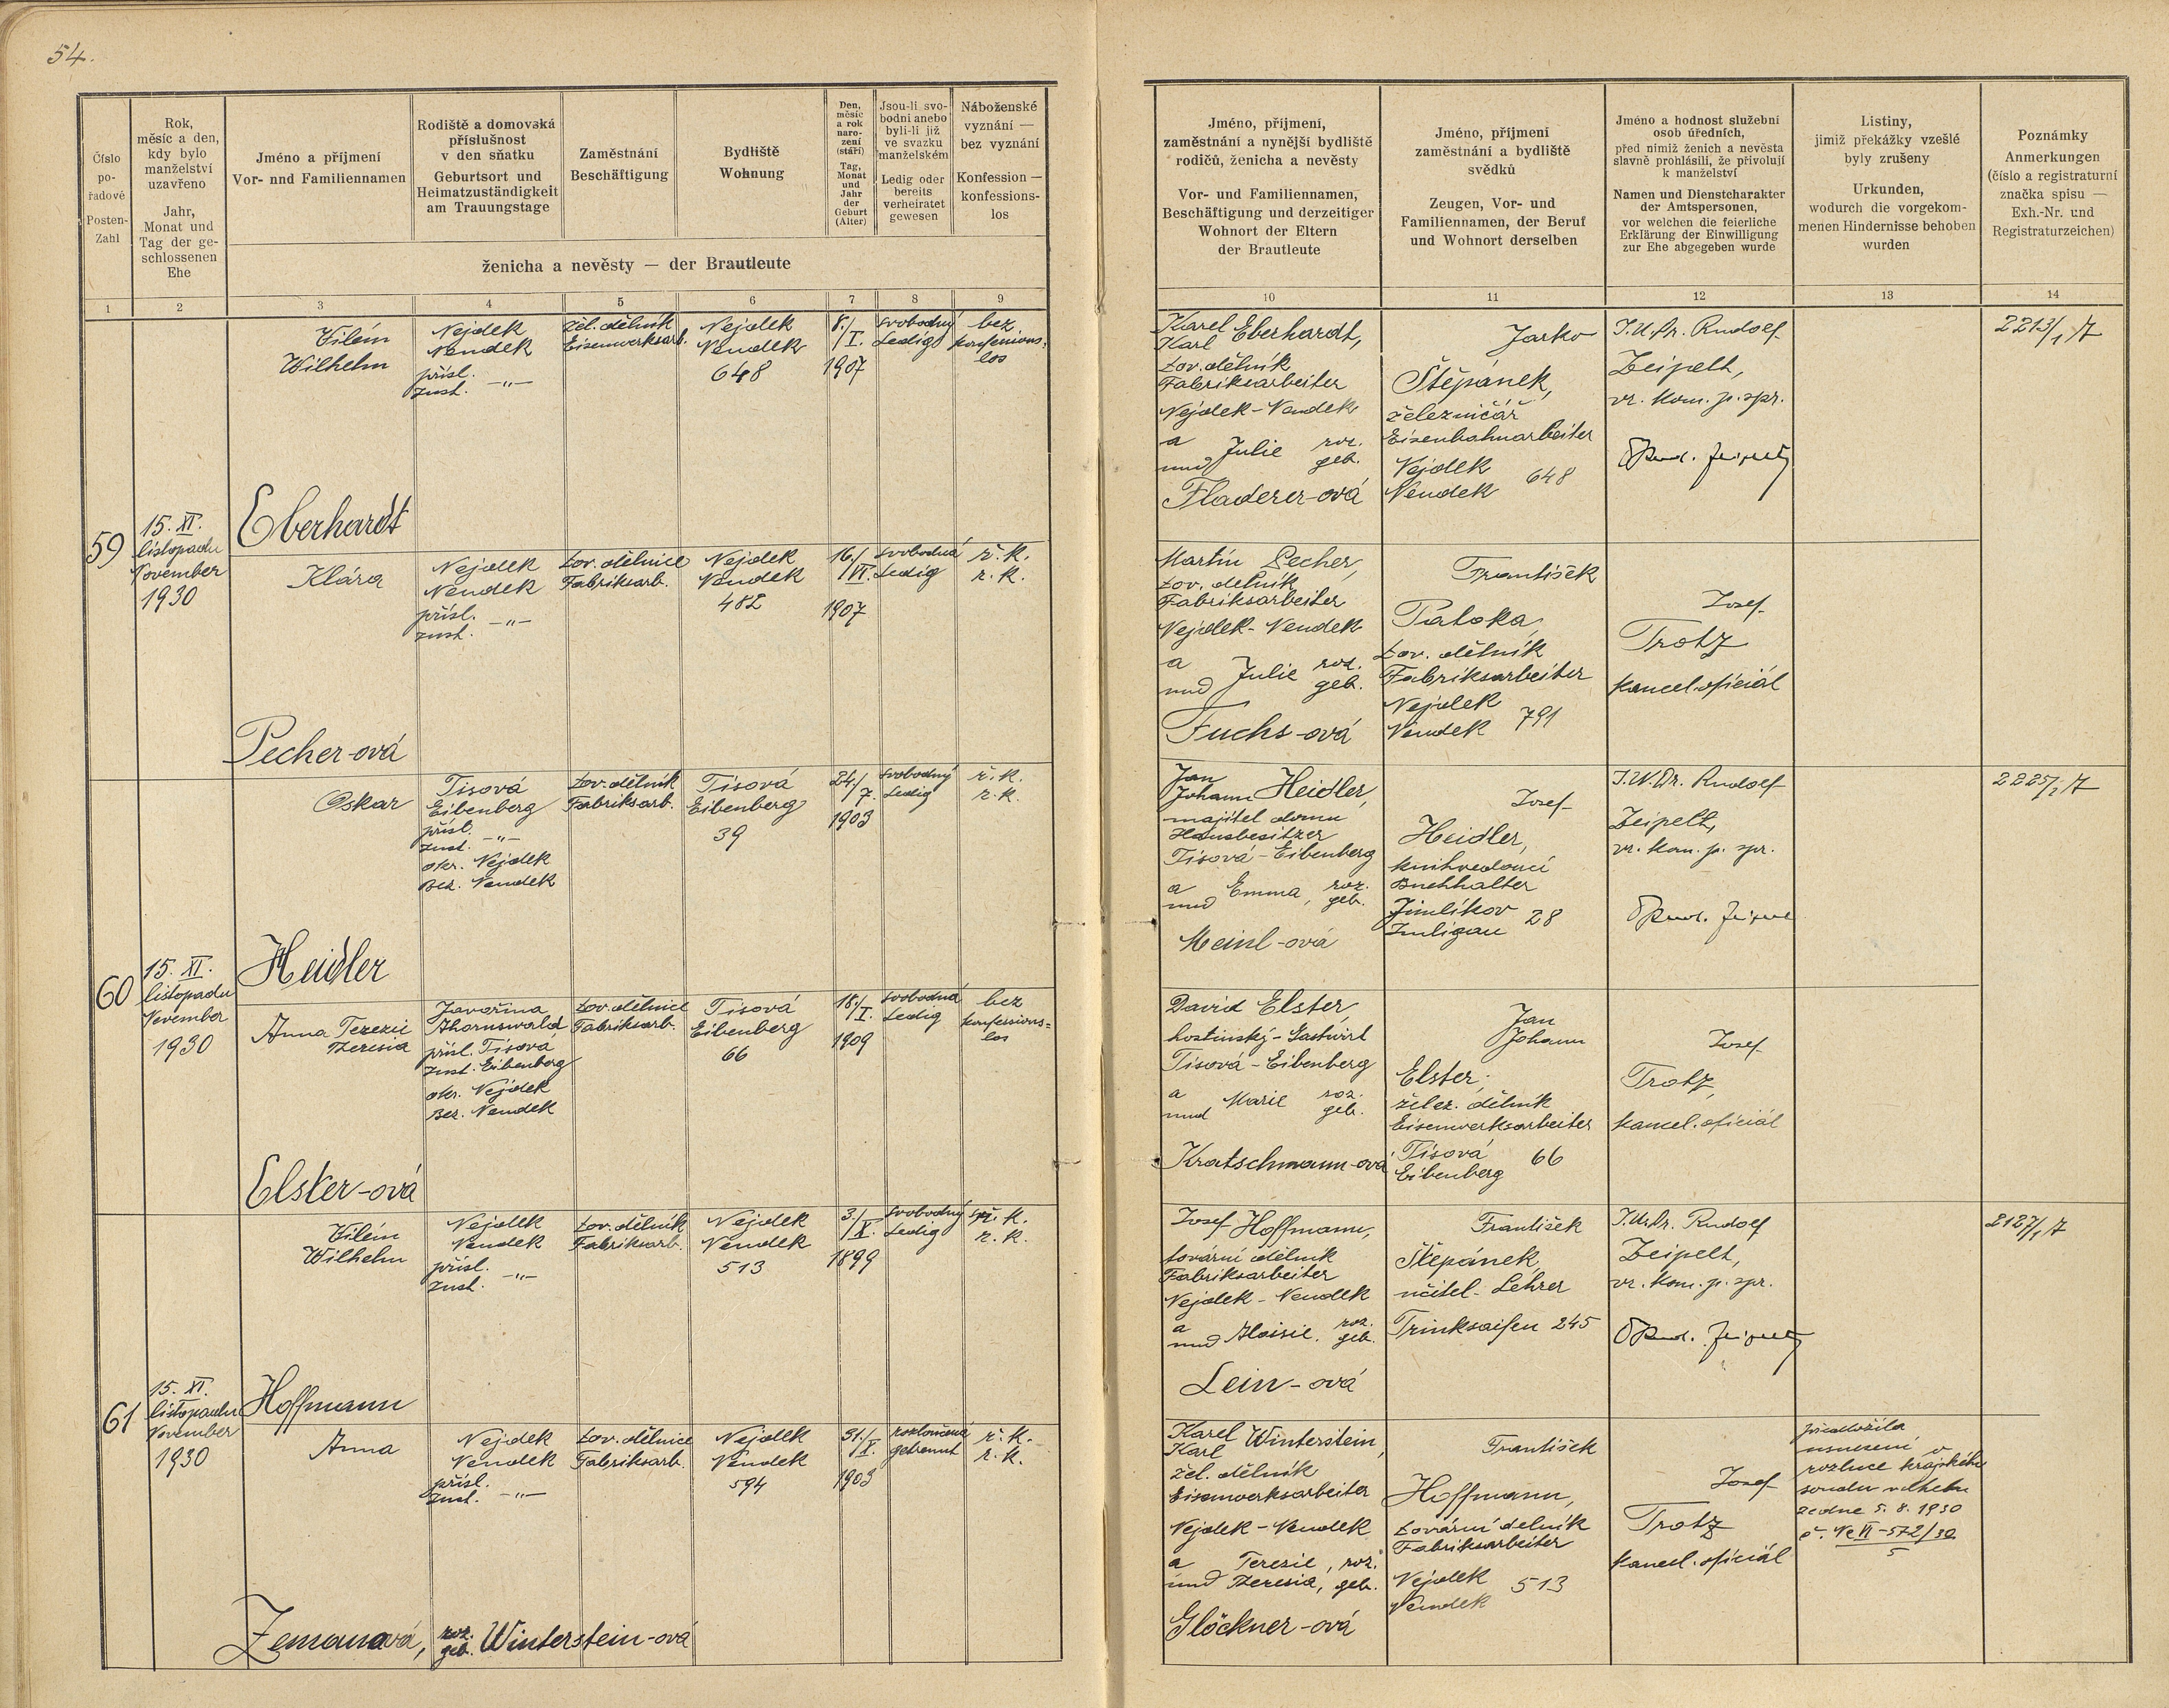 54.
Číslo
po-
řadové
Posten-
Zahl
Rok,
měsíc a den,
kdy bylo
manželství
uzavřeno
Jahr,
Monat und
Tag der ge-
schlossenen
Ehe
Jméno a příjmení
Vor- und Familiennamen
Rodiště a domovská
příslušnost
v den sňatku
Geburtsort und
Heimatzuständigkeit
am Trauungstage
Zaměstnání
Beschäftigung
Bydliště
Wohnung
Den,
měsíc
a rok
naro-
zení
(stáří)
Tag,
Monat
und
Jahr
der
Geburt
(Alter)
Jsou-li svo-
bodni anebo
byli-li již
ve svazku
manželském
Ledig oder
bereits
verheiratet
gewesen
Náboženské
vyznání —
bez vyznání
Konfession —
konfessions-
los
ženicha a nevěsty — der Brautleute
Jméno, příjmení,
zaměstnání a nynější bydliště
rodičů, ženicha a nevěsty
Vor- und Familiennamen,
Beschäftigung und derzeitiger
Wohnort der Eltern
der Brautleute
Jméno, příjmení
zaměstnání a bydliště
svědků
Zeugen, Vor- und
Familiennamen, der Beruf
und Wohnort derselben
Jméno a hodnost služební
osob úředních,
před nimiž ženich a nevěsta
slavně prohlásili, že přivolují
k manželství
Namen und Dienstcharakter
der Amtspersonen,
vor welchen die feierliche
Erklärung der Einwilligung
zur Ehe abgegeben wurde
Listiny,
jimiž překážky vzešlé
byly zrušeny
Urkunden,
wodurch die vorgekom-
menen Hindernisse behoben
wurden
Poznámky
Anmerkungen
(číslo a registraturní
značka spisu —
Exh.-Nr. und
Registraturzeichen)
1 2 3 4 5 6 7 8 9 10 11 12 13 14
59
15. XI.
listopadu
November
1930
Vilém
Wilhelm
Eberhardt
Nejdek
Neudek
přísl.
zust. -„-
žel. dělník
Eisenwerksarb.
Nejdek
Neudek
648
8./
/I.
1907
svobodný
ledig
bez
konfessions-
los
Karel
Karl Eberhardt,
tov. dělník
Fabriksarbeiter
Nejdek - Neudek
a
und Julie roz.
geb.
Fladerer-ová
Jarko
Štěpánek,
železničář
Eisenbahnarbeiter
Nejdek
Neudek 648
J.U.Dr. Rudolf
Zeipelt,
vr. kom. p. spr.
2213/1, 7
Klára
Pecher-ová
Nejdek
Neudek
přísl.
zust. -„-
tov. dělnice
Fabriksarb.
Nejdek
Neudek
482
16./
/VI.
1907
svobodná
ledig
ř. k.
r. k.
Martin Pecher,
tov. dělník
Fabriksarbeiter
Nejdek - Neudek
a
und Julie roz.
geb.
Fuchs-ová
František
Patoka,
tov. dělník
Fabriksarbeiter
Nejdek
Neudek 791
Josef
Trotz
kancel. oficiál
60
15. XI.
listopadu
November
1930
Oskar
Heidler
Tisová
Eibenberg
přísl.
zust. -„-
okr. Nejdek
Bez. Neudek
tov. dělník
Fabriksarb.
Tisová
Eibenberg
39
24./
/7.
1903
svobodný
ledig
ř. k.
r. k.
Jan
Johann Heidler,
majitel domu
Hausbesitzer
Tisová - Eibenberg
a
und Emma, roz.
geb.
Meinl-ová
Josef
Heidler,
knihvedoucí
Buchhalter
Jimlíkov
Imligau 28
J.U.Dr. Rudolf
Zeipelt,
vr. kom. p. spr.
2225/1, 7
Anna Terezie
Theresia
Elster-ová
Javořina
Ahornswald
přísl. Tisová
zust. Eibenberg
okr. Nejdek
Bez. Neudek
tov. dělnice
Fabriksarb.
Tisová
Eibenberg
66
18./
/I.
1909
svobodná
ledig
bez
konfessions-
los
David Elster,
hostinský - Gastwirt
Tisová - Eibenberg
a
und Marie roz.
geb.
Kratschmann-ová
Jan
Johann
Elster,
želez. dělník
Eisenwerksarbeiter
Tisová
Eibenberg 66
Josef
Trotz,
kancel. oficiál
61
15. XI.
listopadu
November
1930
Vilém
Wilhelm
Hoffmann
Nejdek
Neudek
přísl.
zust. -„-
tov. dělník
Fabriksarb.
Nejdek
Neudek
513
3./
/X.
1899
svobodný
ledig
ř. k.
r. k.
Josef Hoffmann,
tovární dělník
Fabriksarbeiter
Nejdek - Neudek
a
und Aloisie, roz.
geb.
Lein-ová
František
Štěpánek,
učitel - Lehrer
Trinksaifen 245
J.U.Dr. Rudolf
Zeipelt,
vr. kom. p. spr.
2127/1, 7
Anna
Zemanová, roz.
geb. Winterstein-ová
Nejdek
Neudek
přísl.
zust. -„-
tov. dělnice
Fabriksarb.
Nejdek
Neudek
594
31./
/X.
1903
rozloučená
getrennt
ř. k.
r. k.
Karel
Karl Winterstein,
žel. dělník
Eisenwerksarbeiter
Nejdek - Neudek
a Terezie, roz.
und Theresia, geb.
Glöckner-ová
František
Hoffmann,
tovární dělník
Fabriksarbeiter
Nejdek
Neudek 513
Josef
Trotz
kancel. oficiál
předložila
usnesení o
rozluce krajského
soudu v Chebu
ze dne 5. 8. 1930
č. Nc VI - 572/30
5